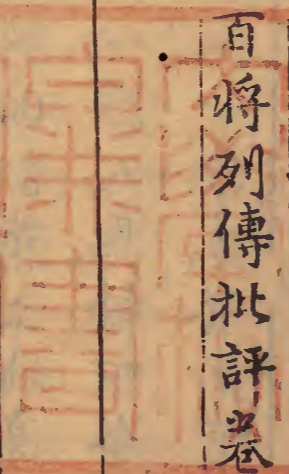 百將列傳批評卷